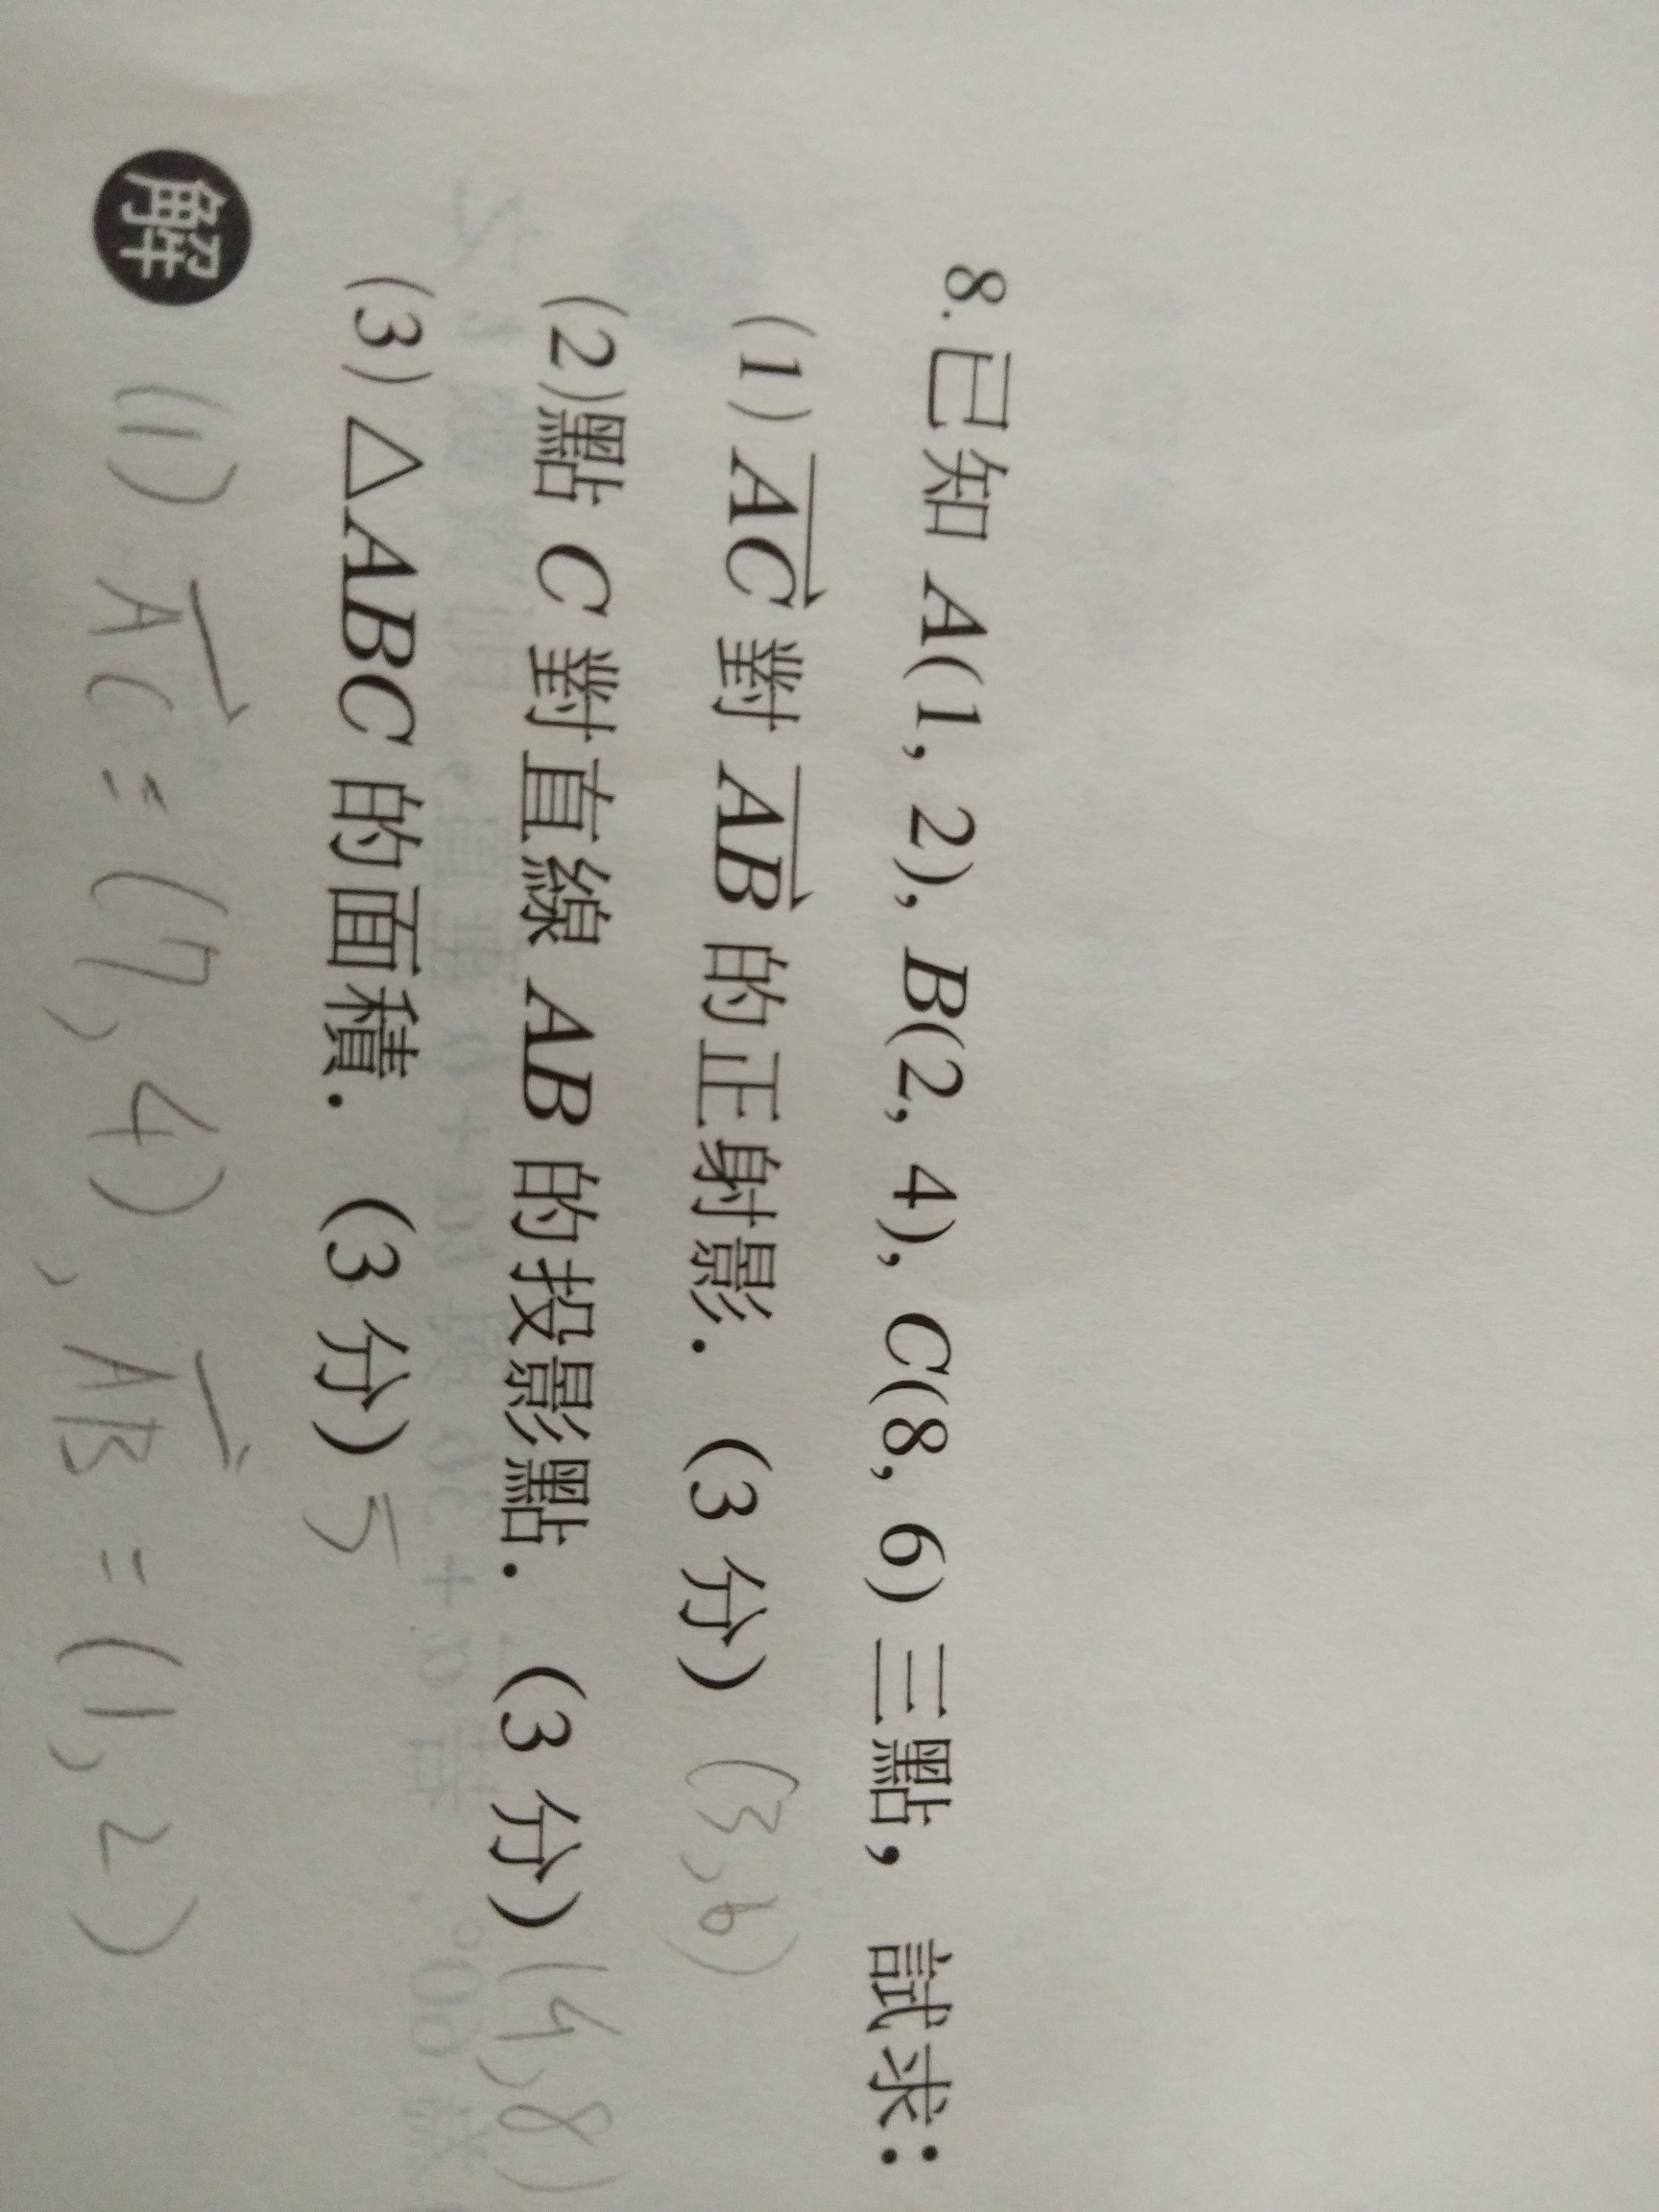 8.已知 A(1, 2), B(2, 4), C(8, 6) 三點，試求：
(1) AC 對 AB 的正射影． (3 分) (3,6)
(2)點 C 對直線 AB 的投影點． (3 分) (4,8)
(3) △ABC 的面積． (3 分) 5
解 (1) AC = (7, 4), AB = (1, 2)